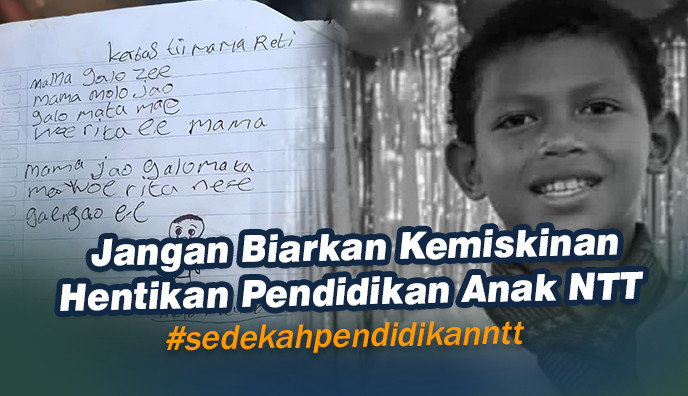 kertas tii mama Reti
mama galo zee
mama molo jao
galo mata mae
woe rita ee mama
mama jao galo mata
mae woe rita nee
gae ngao ee
Jangan Biarkan Kemiskinan
Hentikan Pendidikan Anak NTT
#sedekahpendidikanntt